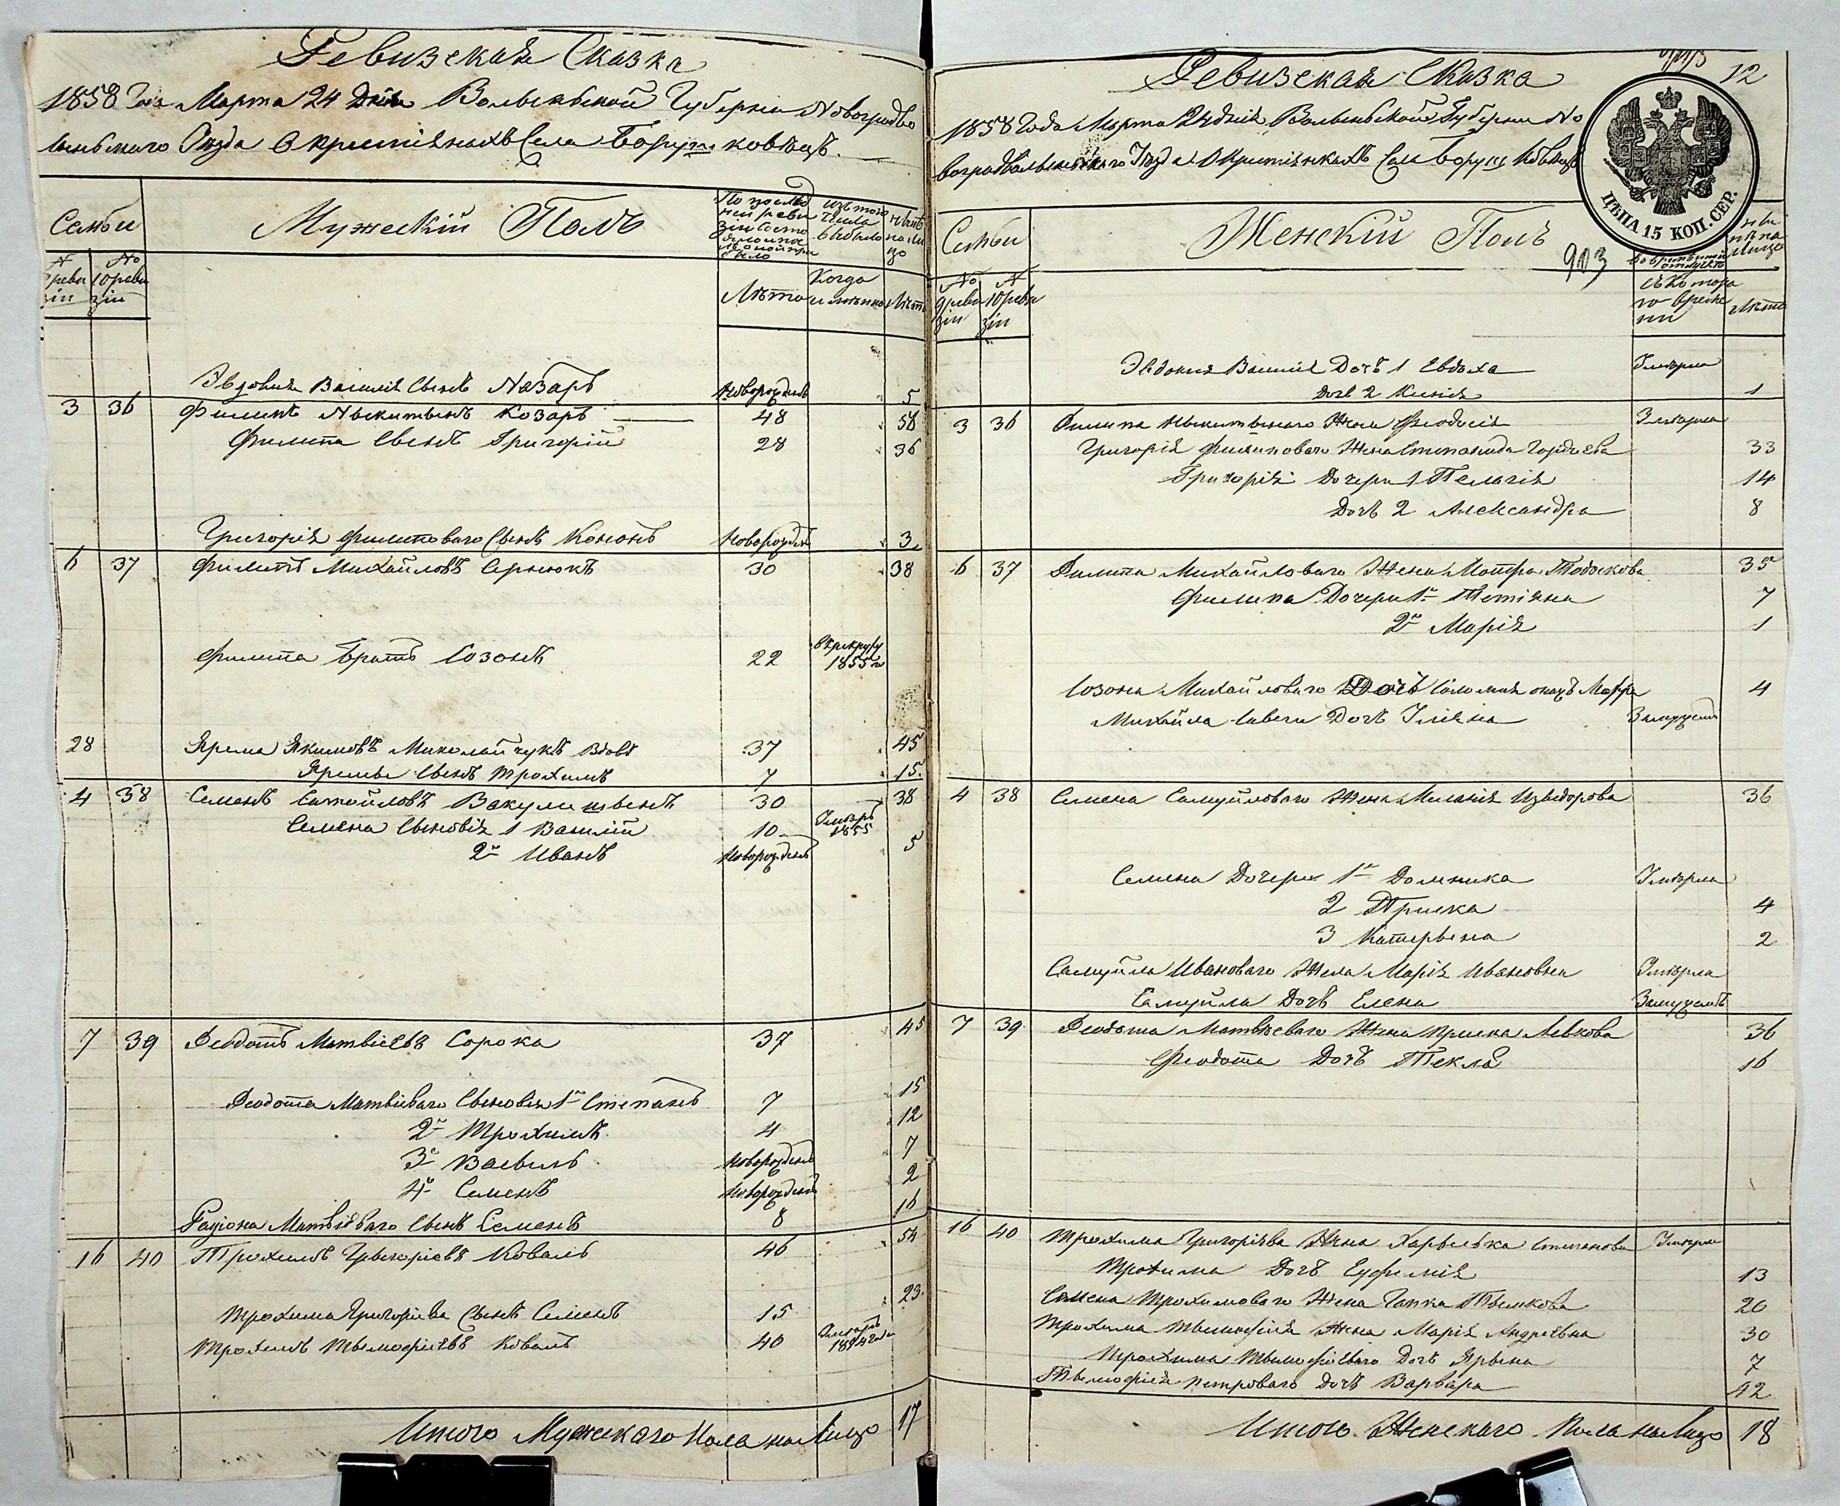 Ревизская Сказка
1858 Года Марта 24 Дня Волынской Губернии Новоградво
лынского Уезда О крестянахъ Села Борушковецъ.
Семьи
Мужескій Полъ
По послед
ней реви
зіи состо
изъ того
числа
выбыло
ныне
на ли
цо
№ реви
зіи
№ 10 реви
зіи
Лета
Когда
именно
Лета
Василія Сынъ Назаръ Новорожденъ 5
3 36 Филипъ Никитынъ Козаръ 48 56
Филипа Сынъ Григорій 28 36
Григорія Филиповаго Сынъ Кононъ Новорожден 3
6 37 Филипъ Михайловъ 30 38
Филипа братъ Созонъ 22 въ рекруту 1855 го
28 Ярема Якимовъ Миколайчукъ Вдовъ 37 45
Яремы Сынъ Трохимъ 7 15
4 38 Семенъ Самойловъ Вакулишынъ 30 38
Семена Сыновія 1 Василій 10 Умеръ 1855
2й Иванъ Новорожденъ 5
7 39 Феодотъ Матвіевъ Сорока 37 45
Феодота Матвіеваго Сыновія 1й Степанъ 7 15
2й Трохимъ 4 12
3й Василь Новорожденъ 7
4й Семенъ Новорожденъ 2
Родіона Матвіеваго Сынъ Семенъ 8 16
16 40 Трохимъ Грыгоріевъ Коваль 46 54
Трохима Григоріева Сынъ Семенъ 15 23
Трохимъ Тымофіевъ Коваль 40 Умеръ
Итого Мужескаго Пола на Лицо 17
12
Ревизская Сказка
1858 Года Марта 24 дня Волынской Губернии Но
воградволынского Уезда О Крестянкахъ Села Борушковецъ
ЦѢНА 15 КОП. СЕР.
Семьи
Женскій Полъ
903
Во временной
отлучке
ныне на
лицо
№
9 реви
зіи
№
10 реви
зіи
съ котора
го време
ни
Лета
Василія Дочъ 1 Евдоха Умерла
Дочъ 2 Ксенія 1
3 36 Филипа Никитынаго Жена Феодосія Умерла
Григорія Филиповаго Жена Степанида Гордіева 33
Григорія Дочери 1 Пелагія 14
Дочъ 2 Александра 8
6 37 Филипа Михайловаго Жена Мотра 35
Филипа Дочери 1я Тетіяна 7
2я Марія 1
Созона Михайловаго Дочъ Соломия Марфа 4
Михайла Савечи Дочъ Уліяна Замужемъ
4 38 Семена Самуйловаго Жена Меланія Изыдорова 36
Семена Дочери 1я Домника Умерла
2 Приска 4
3 Катерына 2
Самуйла Ивановаго Жена Марія Ивановна Умерла
Самуйла Дочъ Елена Замужемъ
7 39 Феодота Матвіеваго Жена Приска Левкова 36
Феодота Дочъ Текла 16
16 40 Трохима Григоріева Жена Харытька Степанова Умерла
Трохима Дочъ Еуфимія 13
Семена Трохимоваго Жена Гапка Тымкова 20
Трохима Тымофія Жена Марія Андреевна 30
Трохима Тымофіеваго Дочъ Ярына 7
Тымофія Петроваго Дочъ Варвара 42
Итого Женскаго Пола на Лицо 18